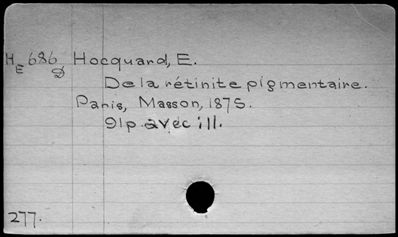 HE 686 D Hocquard, E.
De la rétinite pigmentaire.
Paris, Masson, 1875.
91p. avec ill.
277.